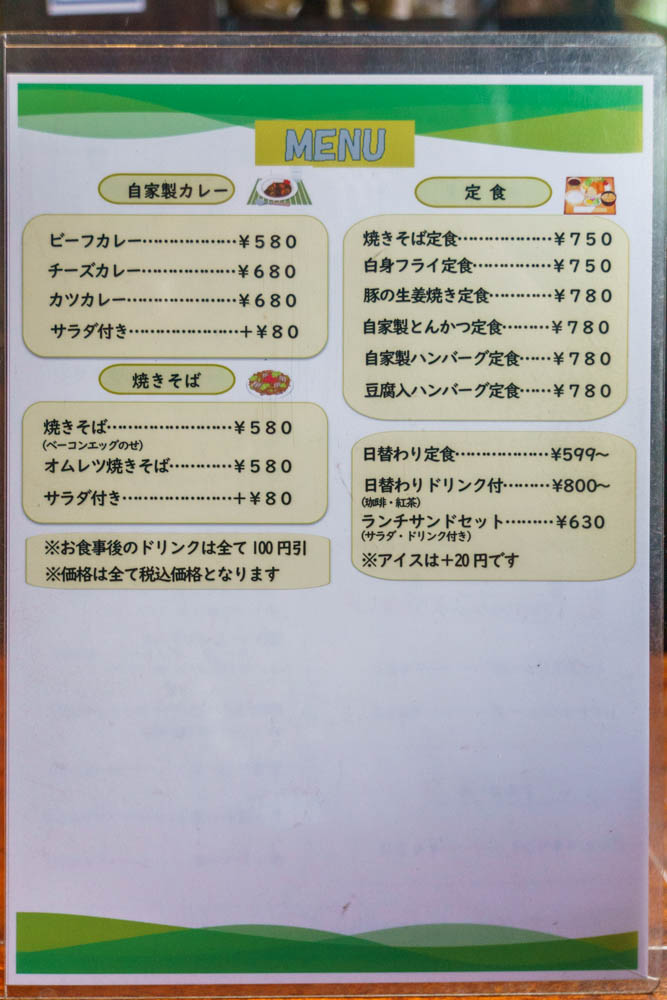 MENU
自家製カレー
ビーフカレー………………￥580
チーズカレー………………￥680
カツカレー…………………￥680
サラダ付き…………………＋￥80
焼きそば
焼きそば……………………￥580
(ベーコンエッグのせ)
オムレツ焼きそば…………￥580
サラダ付き…………………＋￥80
※お食事後のドリンクは全て100円引
※価格は全て税込価格となります
定食
焼きそば定食………………￥750
白身フライ定食……………￥750
豚の生姜焼き定食…………￥780
自家製とんかつ定食………￥780
自家製ハンバーグ定食……￥780
豆腐入ハンバーグ定食……￥780
日替わり定食………………¥599～
日替わりドリンク付………¥800～
(珈琲・紅茶)
ランチサンドセット………¥630
(サラダ・ドリンク付き)
※アイスは＋20円です